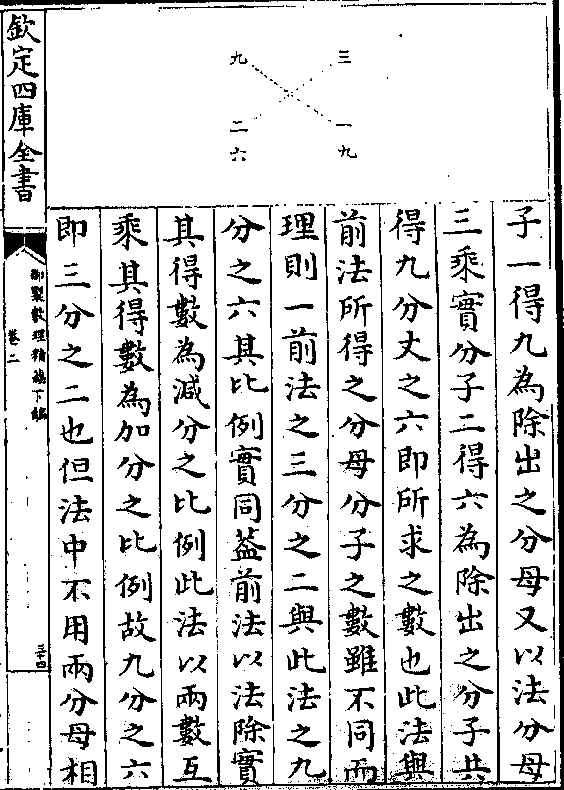 三
一
九
九
二
六
子一得九為除出之分母又以法分母
三乘實分子二得六為除出之分子共
得九分丈之六即所求之數也此法與
前法所得之分母分子之數雖不同而
理則一前法之三分之二與此法之九
分之六其比例實同葢前法以法除實
其得數為減分之比例此法以兩數互
乘其得數為加分之比例故九分之六
即三分之二也但法中不用兩分母相
欽定四庫全書
御製數理精蘊下編
卷二
三十四